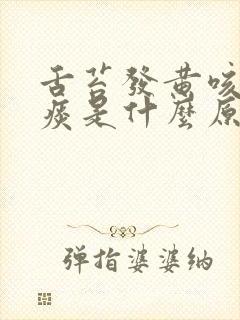 舌苔發黃咳
痰是什麼原
彈指婆婆納